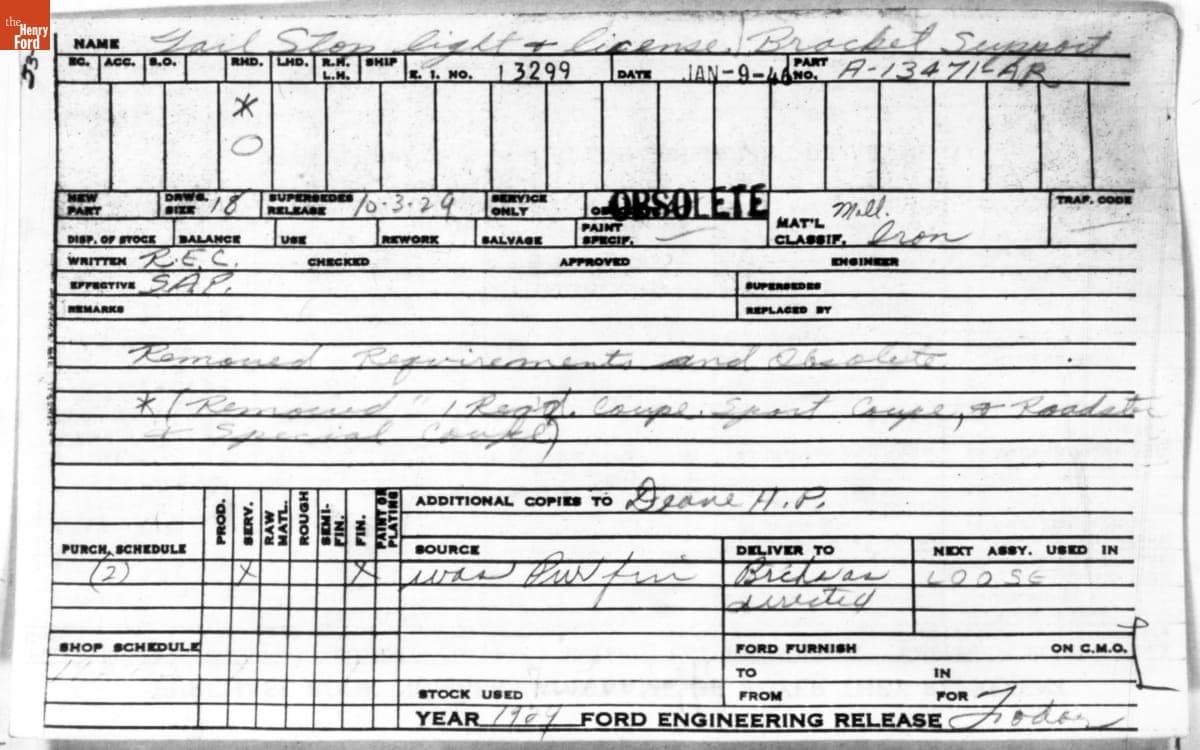 the Henry Ford
NAME Tail Stop light & license Bracket Support
EC. ACC. S.O. RHD. LHD. R.H. L.H. SHIP E. I. NO. 13299 DATE JAN-9-46 PART NO. A-13471-AR
*
O
NEW PART DRWG. SIZE 18 SUPERSEDES RELEASE 10-3-29 SERVICE ONLY OBSOLETE MAT'L CLASSIF. Mall. Iron TRAF. CODE
DISP. OF STOCK BALANCE USE REWORK SALVAGE PAINT SPECIF.
WRITTEN R.E.C. CHECKED APPROVED ENGINEER
EFFECTIVE S.A.P. SUPERSEDES
REMARKS REPLACED BY
Removed Requirements and Obsolete
* ("Removed" 1 Req'd. Coupe, Sport Coupe, & Roadster
& Special Coupe)
PROD. SERV. RAW MATL. ROUGH SEMI-FIN. FIN. PAINT OR PLATING
ADDITIONAL COPIES TO Deane H.P.
PURCH. SCHEDULE SOURCE DELIVER TO NEXT ASSY. USED IN
(2) X X was Pur fin as LOOSE
directed
SHOP SCHEDULE FORD FURNISH ON C.M.O.
TO IN
STOCK USED FROM FOR
YEAR 1929 FORD ENGINEERING RELEASE